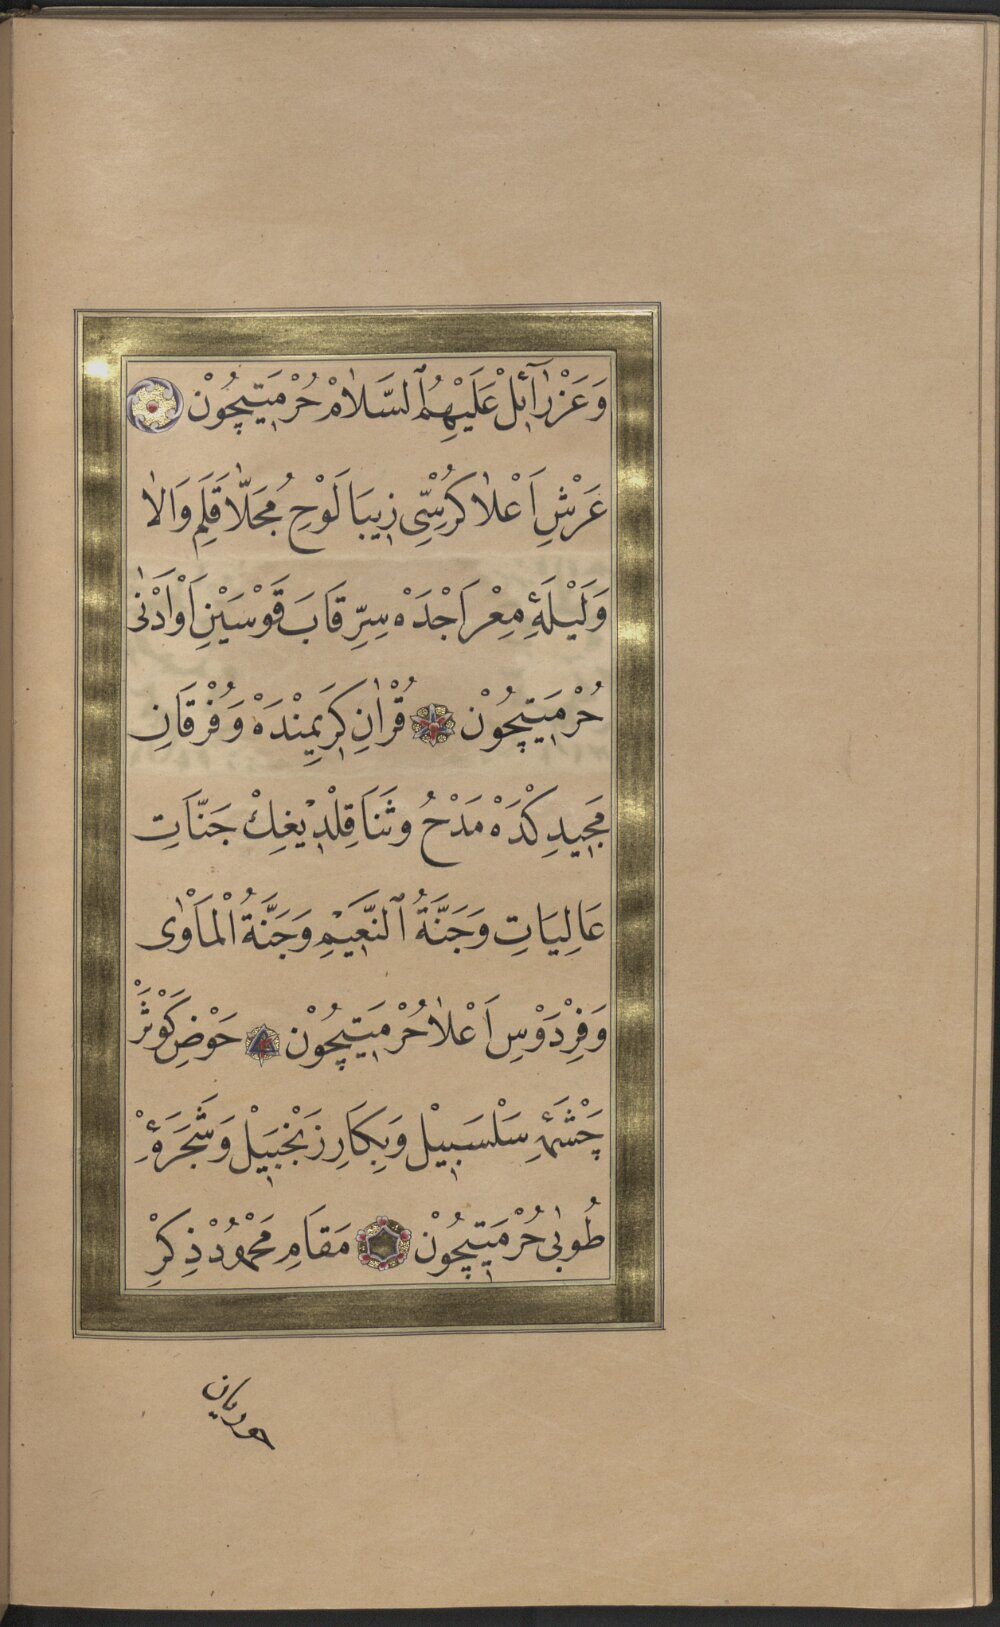 وَعَزْرَآئِلْ عَلَيْهِمُ ٱلسَّلَامْ حُرْمَتِيچُوْنْ
عَرْشِ اَعْلَا كُرْسِّى زِيبَا لَوْحِ مُجَلَّا قَلَمِ وَالَا
وَلَيْلَهِٔ مِعْرَاجْدَهْ سِرِّ قَابَ قَوْسَيْنِ اَوْ اَدْنٰى
حُرْمَتِيچُوْنْ قُرْاٰنِ كَرِيمِنْدَهْ وَفُرْقَانِ
مَجِيدِكْدَهْ مَدْحُ وثَنَا قِلْدِيْغِكْ جَنَّاتِ
عَالِيَاتِ وَجَنَّةُ ٱلنَّعِيْمِ وَجَنَّةُ الْمَاَوْى
وَفِرْدَوْسِ اَعْلَا حُرْمَتِيچُوْنْ حَوْضِ كَوْثَرْ
چَشْمَهِٔ سَلْسَبِيْل وَبِكَارِ زَنْجَبِيْل وَشَجَرَهِٔ
طُوبٰى حُرْمَتِيچُوْنْ مَقَامِ مَحْمُودْ ذِكْرِ
حوريان